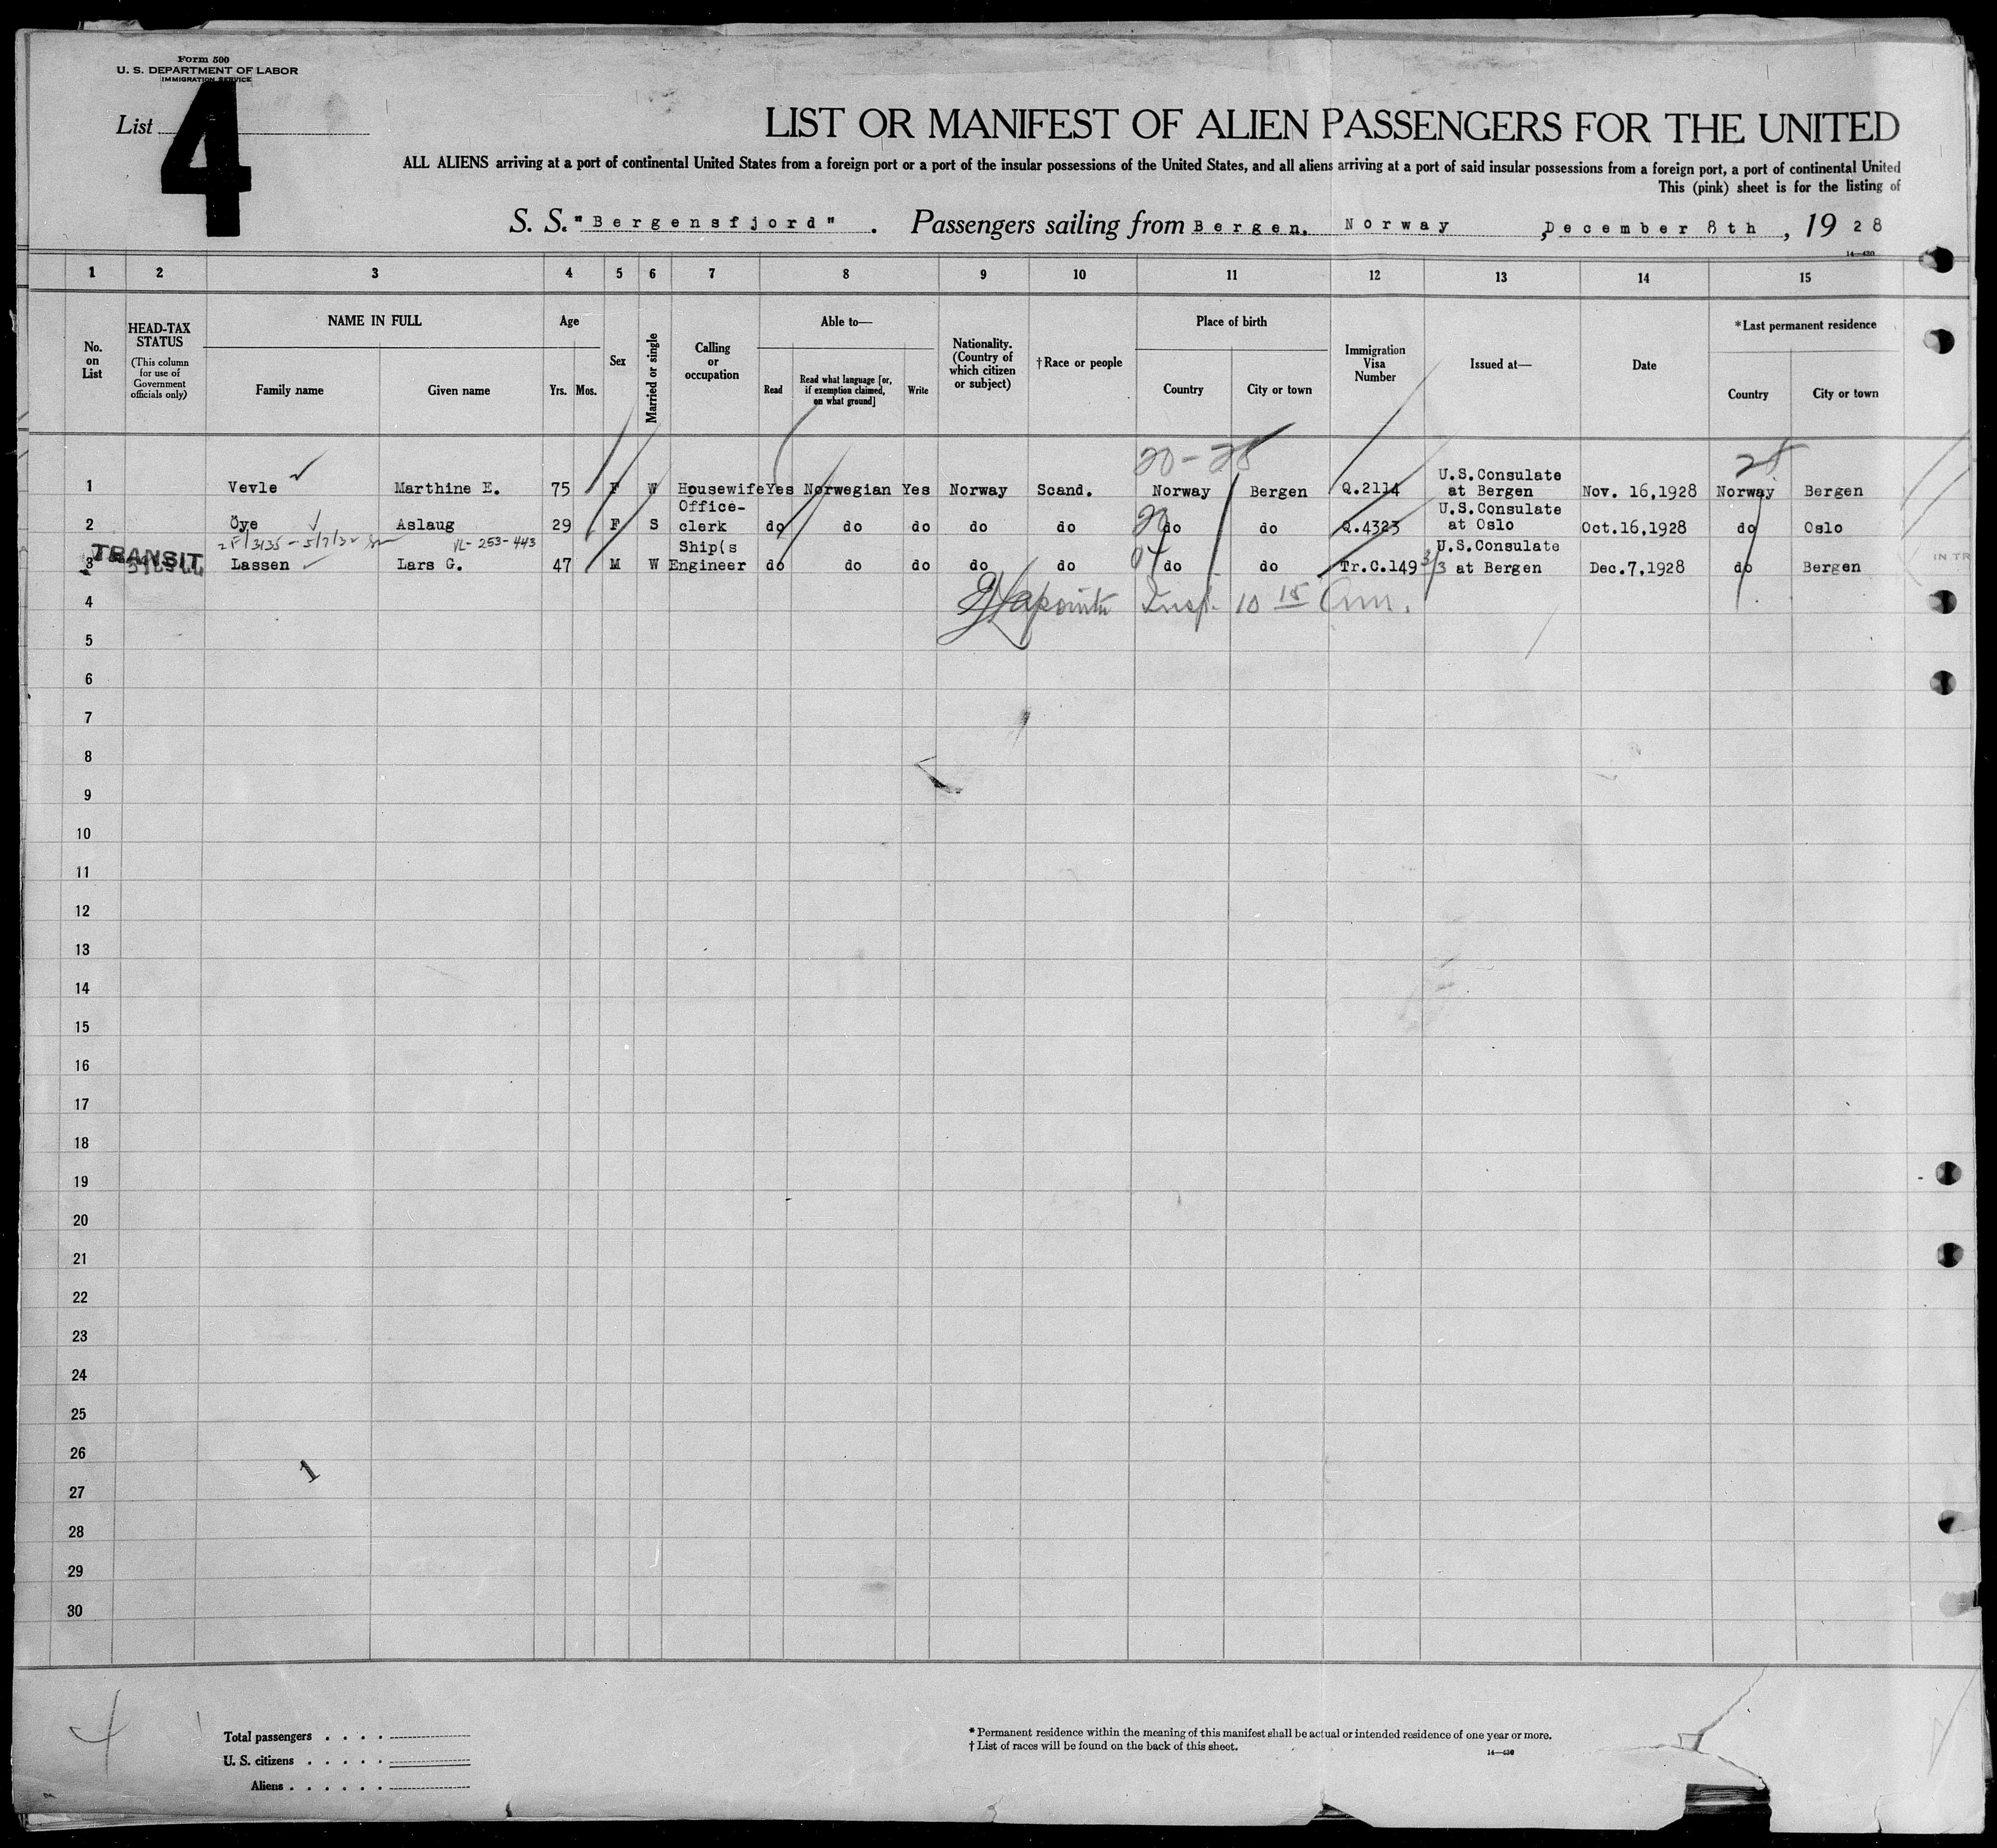 Form 500
U. S. DEPARTMENT OF LABOR
IMMIGRATION SERVICE
List 4
LIST OR MANIFEST OF ALIEN PASSENGERS FOR THE UNITED
ALL ALIENS arriving at a port of continental United States from a foreign port or a port of the insular possessions of the United States, and all aliens arriving at a port of said insular possessions from a foreign port, a port of continental United
This (pink) sheet is for the listing of
S. S. "Bergensfjord". Passengers sailing from Bergen. Norway, December 8th, 1928
14—430
1 2 3 4 5 6 7 8 9 10 11 12 13 14 15
No. on List
HEAD-TAX STATUS
(This column for use of Government officials only)
NAME IN FULL
Family name
Given name
Age
Yrs. Mos.
Sex
Married or single
Calling or occupation
Able to—
Read
Read what language [or, if exemption claimed, on what ground]
Write
Nationality. (Country of which citizen or subject)
†Race or people
Place of birth
Country
City or town
Immigration Visa Number
Issued at—
Date
*Last permanent residence
Country
City or town
20-28
28
1 Vevle Marthine E. 75 F W Housewife Yes Norwegian Yes Norway Scand. Norway Bergen Q.2114 U.S.Consulate at Bergen Nov. 16,1928 Norway Bergen
2 Öye Aslaug 29 F S Office-clerk do do do do do do do Q.4323 U.S.Consulate at Oslo Oct.16,1928 do Oslo
VL-253-443
TRANSIT
3 Lassen Lars G. 47 M W Ship(s Engineer do do do do do do do Tr.C.149 3/3 U.S.Consulate at Bergen Dec.7,1928 do Bergen
IN TR
Insp. 10 15 Am.
4
5
6
7
8
9
10
11
12
13
14
15
16
17
18
19
20
21
22
23
24
25
26
27
28
29
30
1
4
Total passengers . . . .
U. S. citizens . . . . .
Aliens . . . . . .
* Permanent residence within the meaning of this manifest shall be actual or intended residence of one year or more.
† List of races will be found on the back of this sheet.
14—430